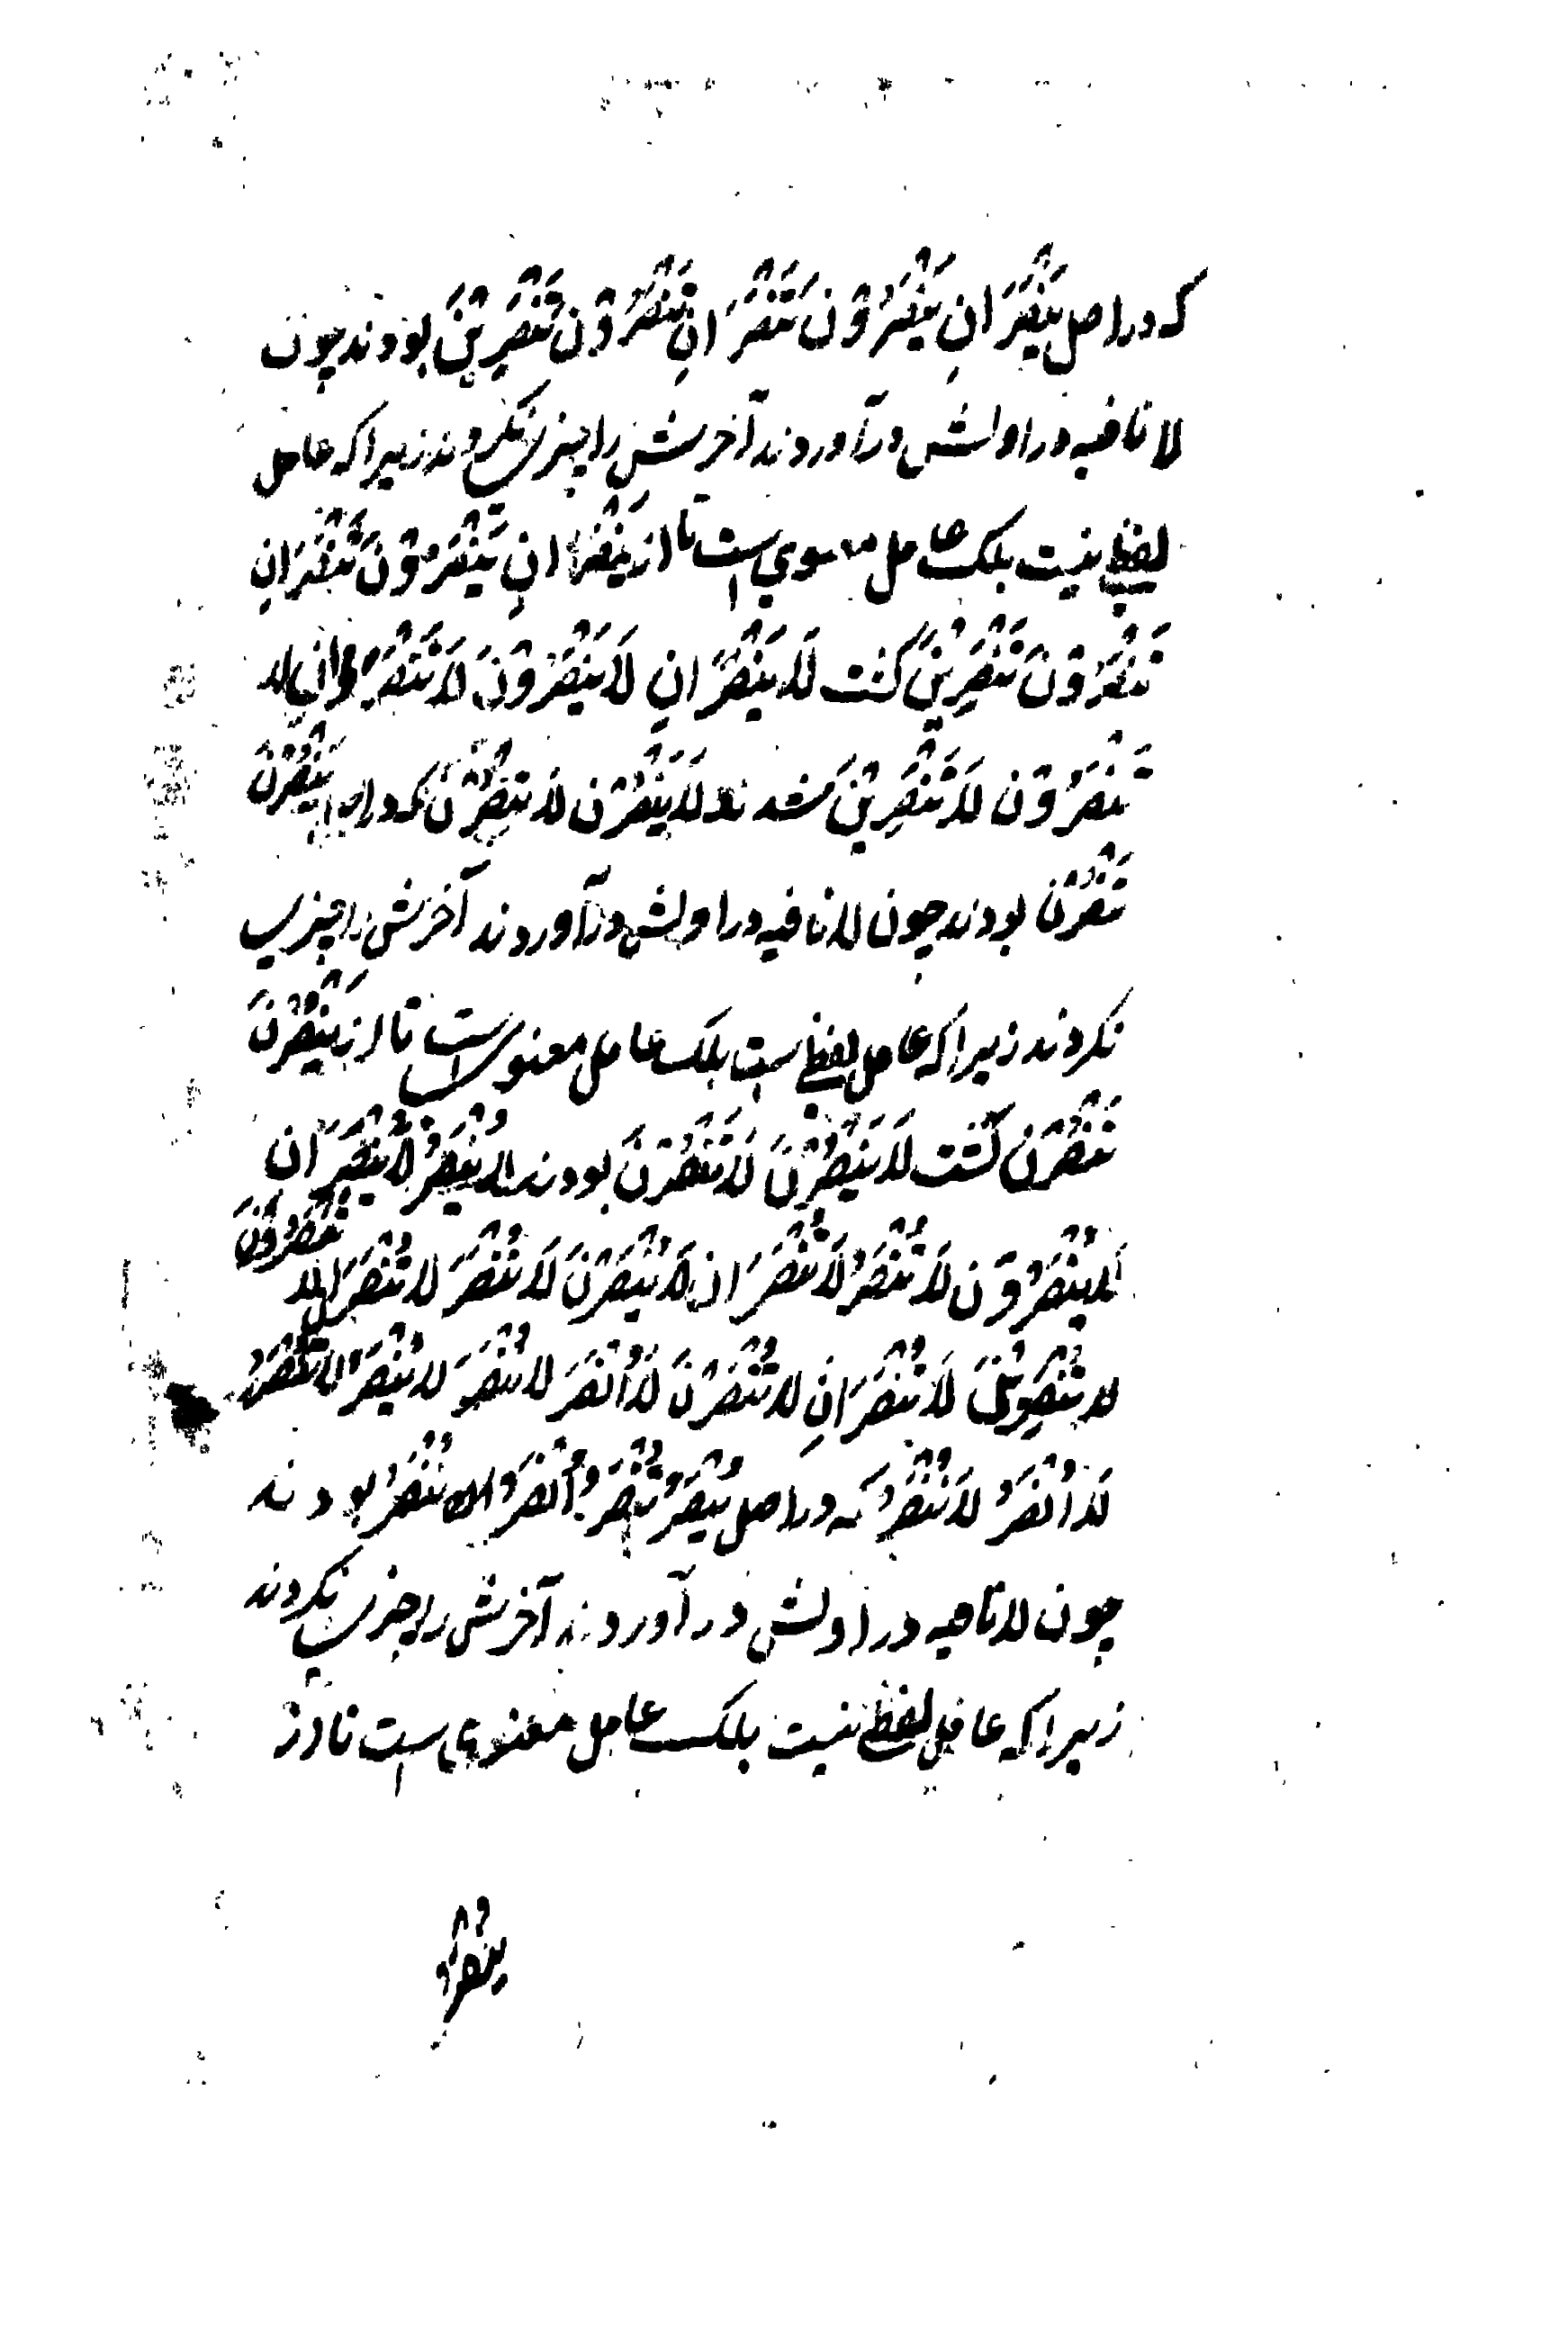 که در اصل یَنْصُرَانِ یَنْصُرُوْنَ تَنْصُرَانِ تَنْصُرُوْنَ تَنْصُرِیْنَ بودند چون
لا نافیه در اولش درآوردند آخرش را چیزی نکردند زیرا که عامل
لفظی نیست بلک عامل معنوی است تا از یَنْصُرَانِ یَنْصُرُوْنَ تَنْصُرَانِ
تَنْصُرُوْنَ تَنْصُرِیْنَ گشت لَا یَنْصُرَانِ لَا یَنْصُرُوْنَ لَا تَنْصُرَانِ لا
تَنْصُرُوْنَ لَا تَنْصُرِیْنَ شدند لَا یَنْصُرْنَ لَا تَنْصُرْنَ که در اصل یَنْصُرْنَ
تَنْصُرْنَ بودند چون لا نافیه در اولش درآوردند آخرش را چیزی
نکردند زیرا که عامل لفظی است بلک عامل معنوی است تا از یَنْصُرْنَ
تَنْصُرْنَ گشت لَا یَنْصُرْنَ لَا تَنْصُرْنَ بودند لا یُنْصَرُ لَا یُنْصَرَانِ
لا یُنْصَرُوْنَ لَا تُنْصَرُ لَا تُنْصَرَانِ لَا یُنْصَرْنَ لَا تُنْصَرُ لا تُنْصَرَانِ لا تُنْصَرُوْنَ
لا تُنْصَرِیْنَ لَا تُنْصَرَانِ لا تُنْصَرْنَ لَا اُنْصَرُ لا نُنْصَرُ لا یُنْصَرُ لا تُنْصَرُ
لَا اُنْصَرُ لَا نُنْصَرُ که در اصل یُنْصَرُ تُنْصَرُ اُنْصَرُ نُنْصَرُ بودند
چون لا نافیه در اولش در آوردند آخرش را چیزی نکردند
زیرا که عامل لفظی نیست بلک عامل معنوی است تا از
یُنْصَرُ